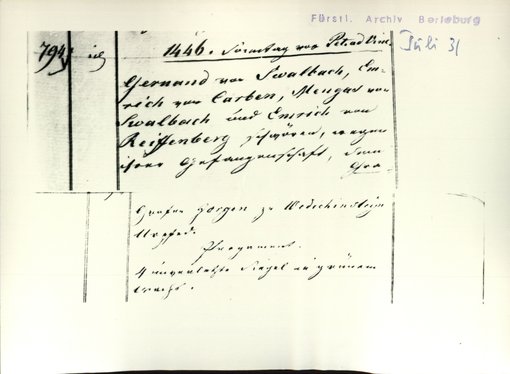 Fürstl. Archiv Berleburg
Juli 31
794
1446. Sonntag vor Pet. ad Vinc.
Gernand von Swalbach, Em-
rich von Carben, Mengas von
Swalbach und Emrich von
Reiffenberg schwören, wegen
ihrer Gefangenschaft, dem
Gra-
Grafen Jorgen zu Witchinstein
Urpfed.
Pergament.
4 unverletzte Siegel in grünem
Wachs.